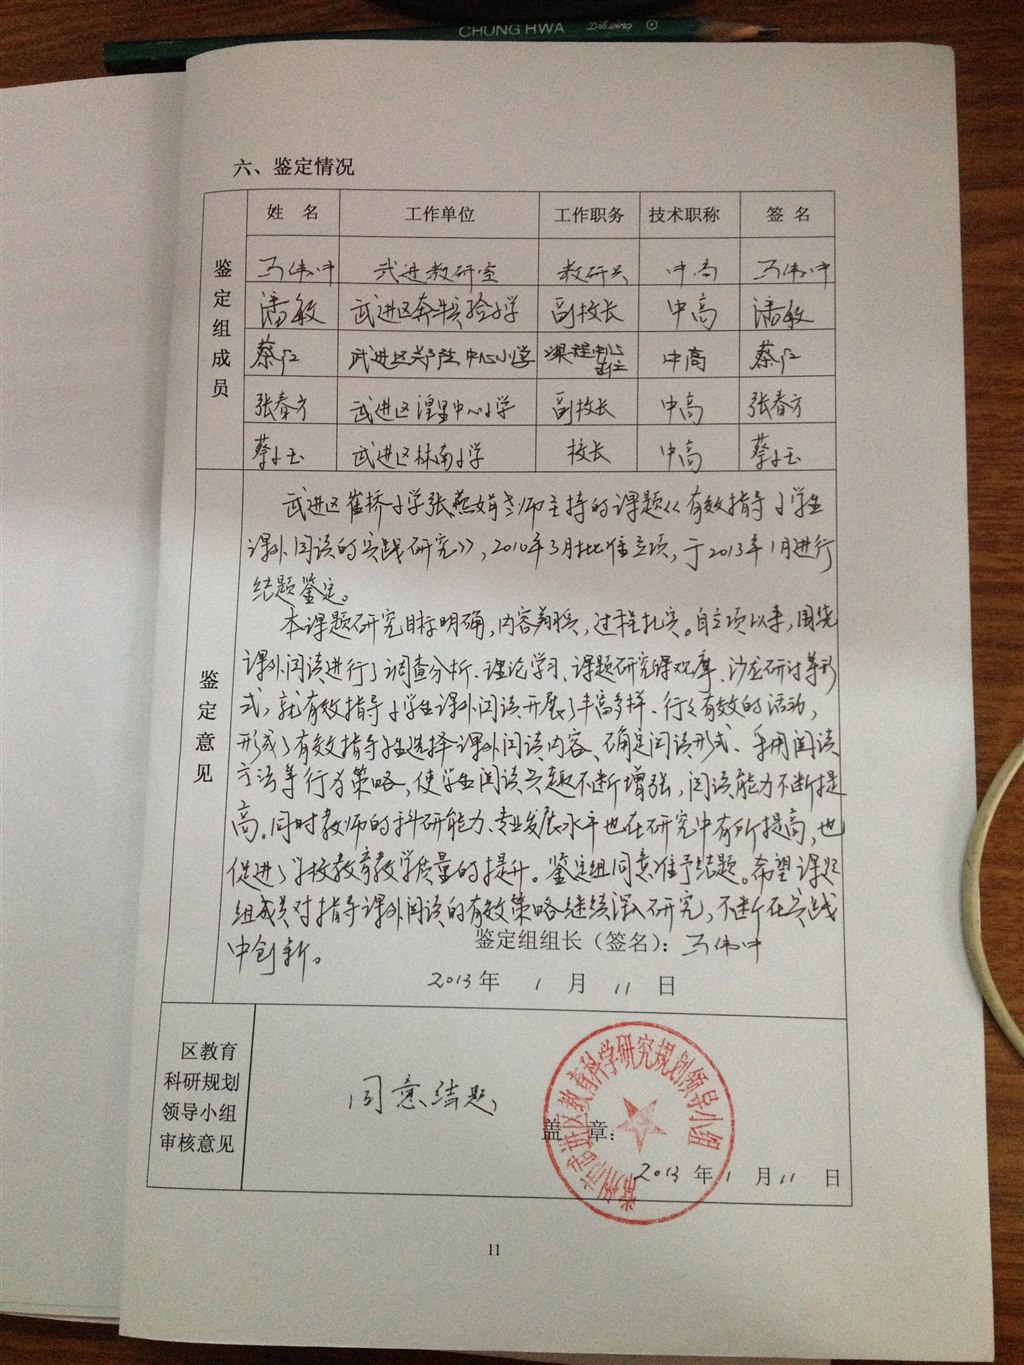 CHUNG HWA Drawing
六、鉴定情况
鉴定组成员
姓 名 工作单位 工作职务 技术职称 签 名
马伟中 武进教研室 教研员 中高 马伟中
潘敏 武进区奔牛实验小学 副校长 中高 潘敏
蔡 武进区 中心小学 课程中心主任 中高 蔡
张春方 武进区湟里中心小学 副校长 中高 张春方
蔡小玉 武进区林南小学 校长 中高 蔡小玉
鉴定意见
武进区崔桥小学张燕娟老师主持的课题《有效指导小学生
课外阅读的实践研究》,2010年3月批准立项,于2013年1月进行
结题鉴定。
本课题研究目标明确,内容翔实,过程扎实。自立项以来,围绕
课外阅读进行了调查分析、理论学习、课题研究课观摩、沙龙研讨等形
式,就有效指导小学生课外阅读开展了丰富多样、行之有效的活动,
形成了有效指导学生选择课外阅读内容、确定阅读形式、利用阅读
方法等行为策略,使学生阅读兴趣不断增强,阅读能力不断提
高。同时教师的科研能力、专业发展水平也在研究中有所提高,也
促进了学校教育教学质量的提升。鉴定组同意准予结题。希望课题
组成员对指导课外阅读的有效策略继续深入研究,不断在实践
中创新。
鉴定组组长(签名): 马伟中
2013 年 1 月 11 日
区教育
科研规划
领导小组
审核意见
同意结题
常州市武进区教育科学研究规划领导小组
盖 章:
2013 年 1 月 11 日
11